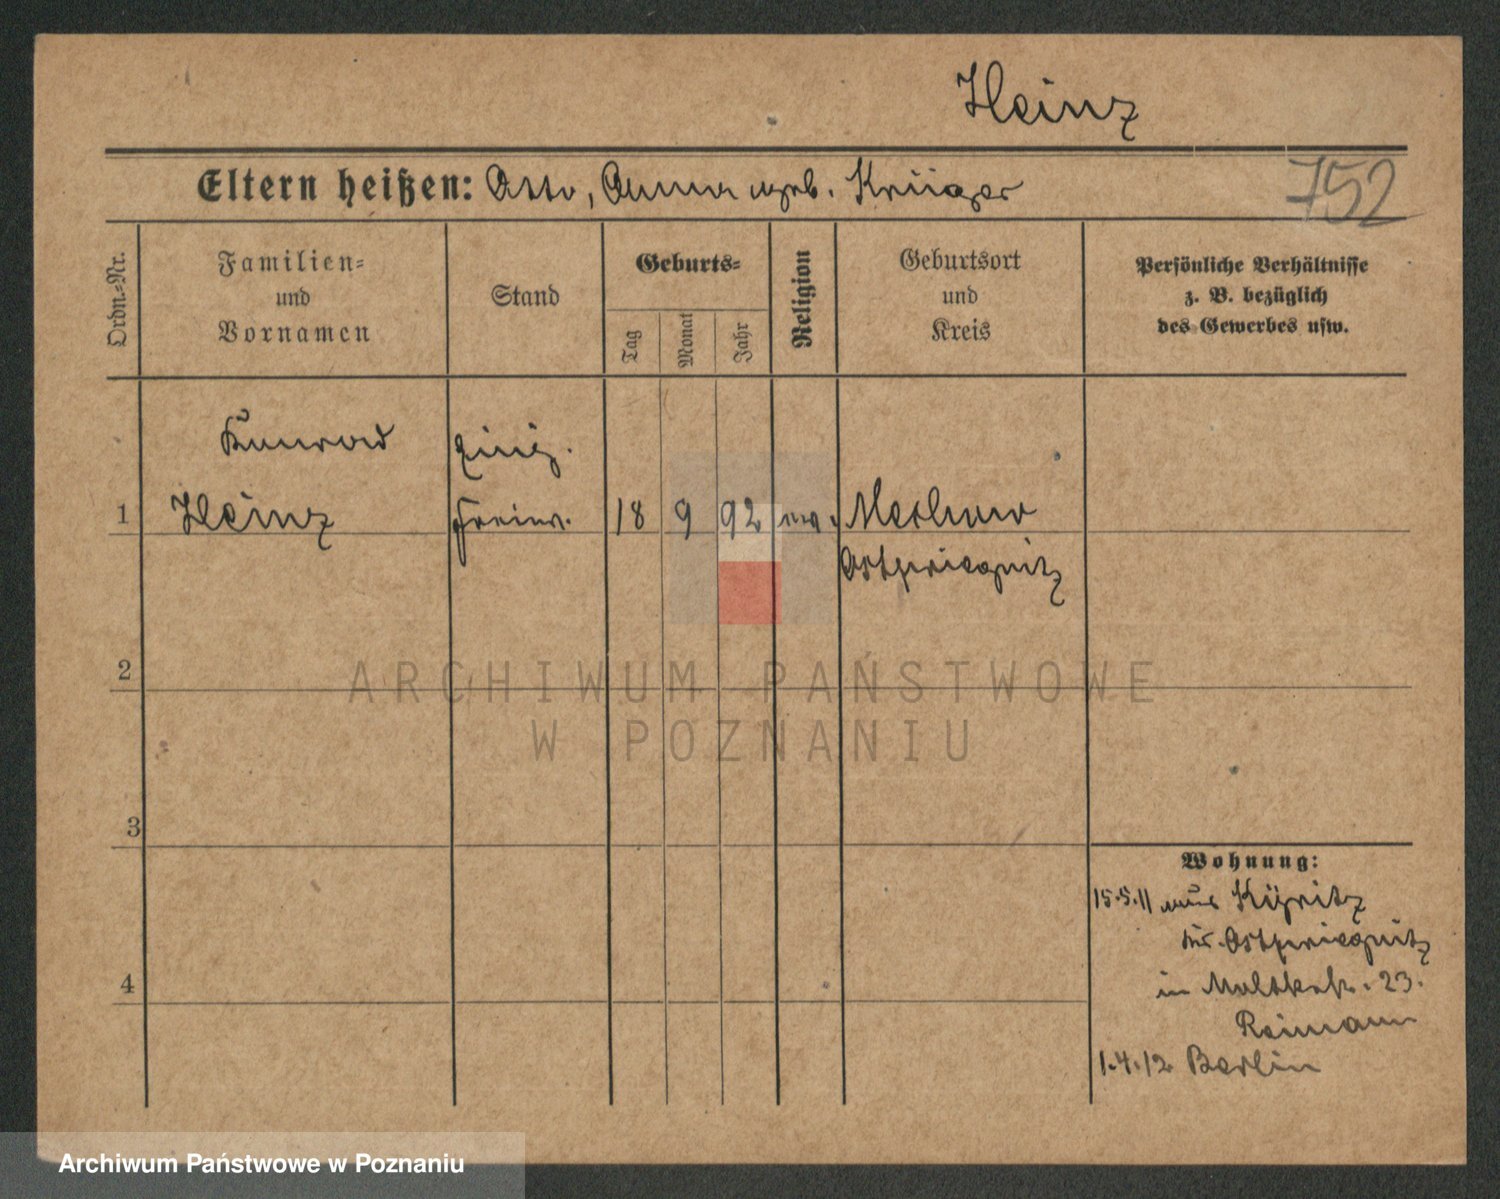 Heinz
Eltern heißen: Otto, Anna geb. Krüger
752
Ordn.-Nr.
Familien-
und
Vornamen
Stand
Geburts-
Tag
Monat
Jahr
Religion
Geburtsort
und
Kreis
Persönliche Verhältnisse
z. B. bezüglich
des Gewerbes usw.
Kunrad einj.
1 Heinz Freiw. 18 9 92 ev.
Ostprieqnitz
2
3
4
Wohnung:
15.5.11 aus Kyritz
Kr. Ostprieqnitz
in Moltkestr. 23.
Reimann
1.4.12 Berlin
ARCHIWUM PAŃSTWOWE
W POZNANIU
Archiwum Państwowe w Poznaniu